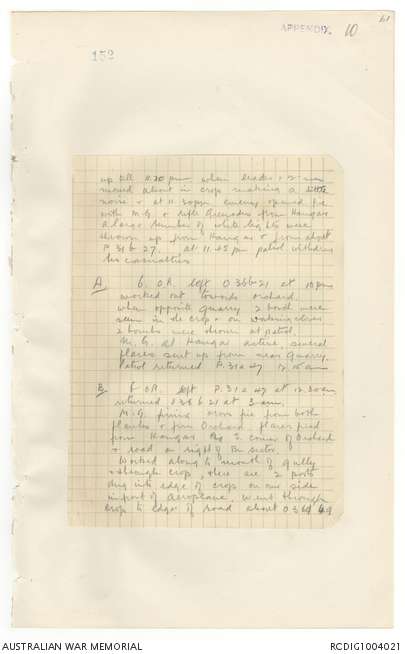 61
APPENDIX 10
152
up till 11.30 pm when leader & 2 men
moved about in crop making a little
noise & at 11.30pm enemy opened fire
with M.G. & rifle Grenades from Hangar
a large number of white lights were
thrown up from Hangar & from about
P.31 b 27. at 11.45 pm patrol withdrew
no casualties
A. 6. O.R. left O 36 b 21 at 10 pm
worked out towards orchard.
when opposite quarry 2 bosch were
seen in the crop & on
2 bombs were thrown at patrol.
M.G. at Hangar active, several
flares sent up from near Quarry.
Patrol returned P.31 a 47 12.15 am
B. 6 O.R. left P.31 a 47 at 12.30 am
returned O36 b 21 at 3 am.
M.G. firing cross fire from both
flanks & from Orchard. flares fired
from Hangar. S. corner of Orchard
& road on right of Bn sector.
Worked along to mouth of gully
& through crop, there are 2 posts
dug into edge of crop on one side
in front of Aeroplane, went through
crop to edge of road about
AUSTRALIAN WAR MEMORIAL
RCDIG1004021